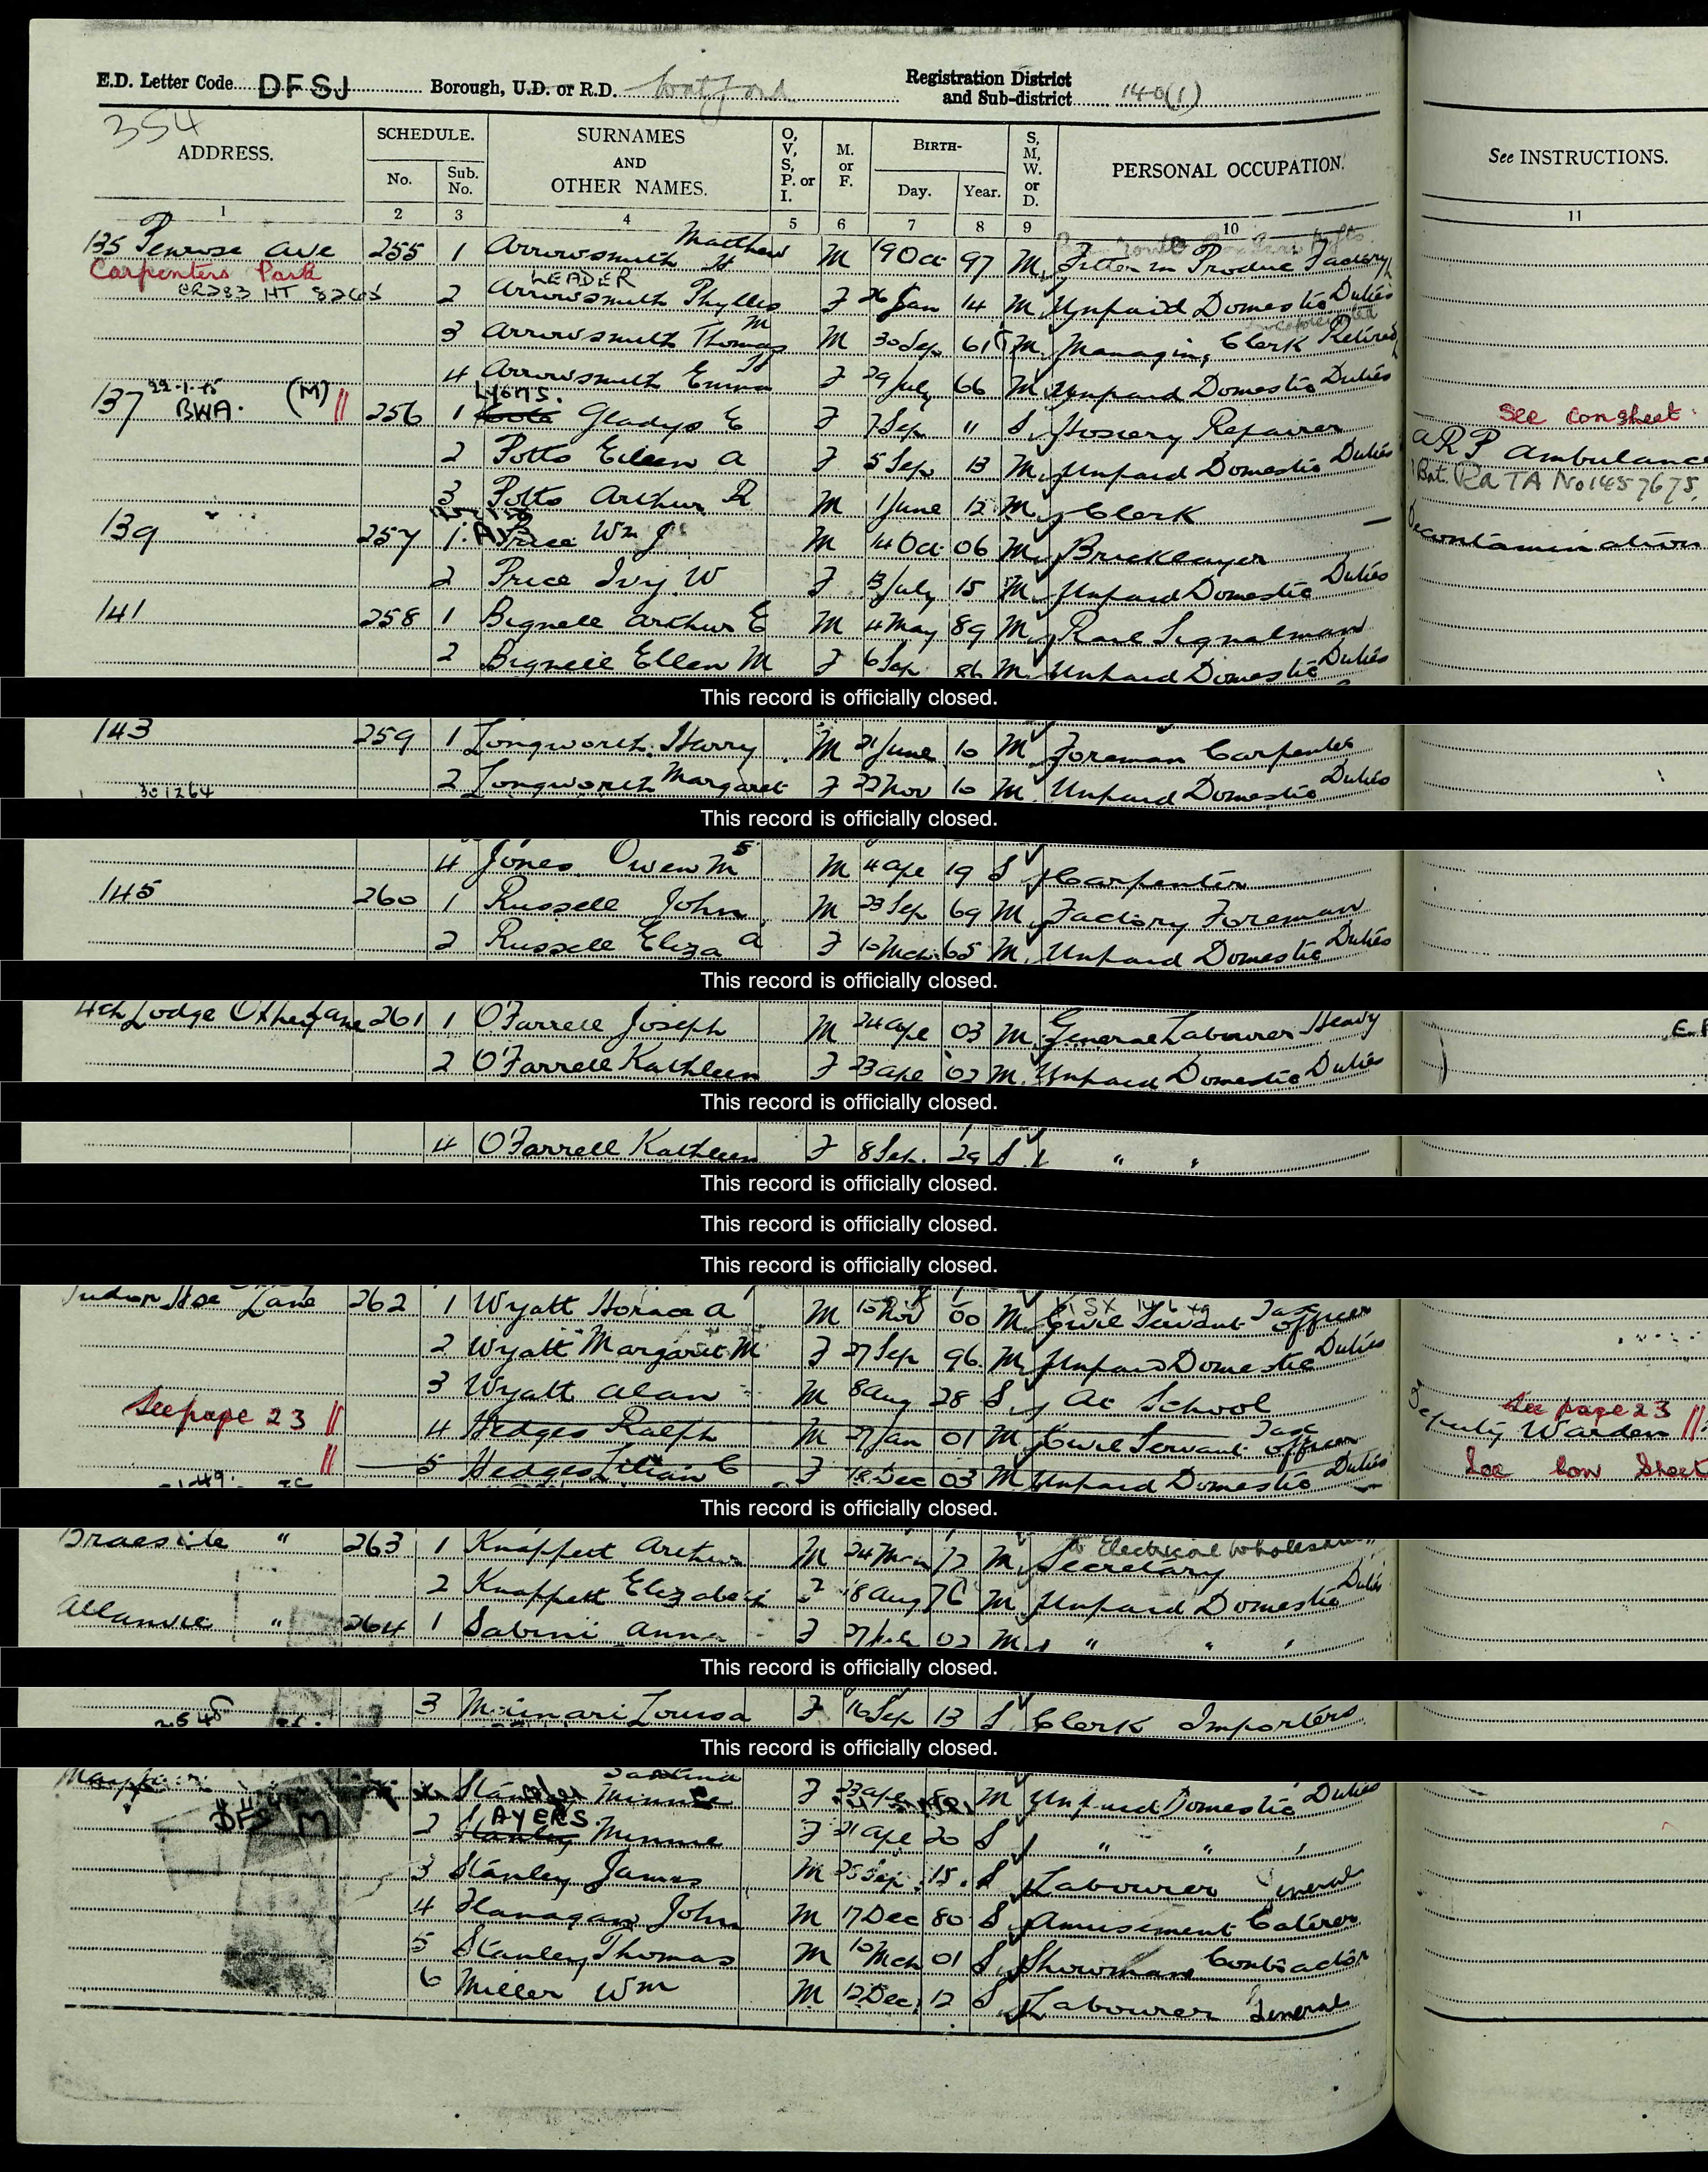 E.D. Letter Code DFSJ Borough, U.D. or R.D. Watford Registration District and Sub-district 140(1)
354
ADDRESS. SCHEDULE. No. Sub. No. SURNAMES AND OTHER NAMES. O, V, S, P. or I. M. or F. BIRTH- Day. Year. S, M, W. or D. PERSONAL OCCUPATION. See INSTRUCTIONS.
1 2 3 4 5 6 7 8 9 10 11
135 Penrose Ave 255 1 Arrowsmith Matthew H M 19 Oct 97 M Fitter in Produc Factory
Carpenters Park
LEADER
2 Arrowsmith Phyllis F 26 Jan 14 M Unpaid Domestic Duties
3 Arrowsmith Thomas M M 30 Sep 61 M Managing Clerk Retired
4 Arrowsmith Emma H F 29 July 66 M Unpaid Domestic Duties
137 22-1-45 BWA. (M) || 256 1 Lyons. Gladys E F 7 Sep " S Hosiery Repairer See con sheet
2 Potts Eileen A F 5 Sep 13 M Unpaid Domestic Duties ARP Ambulance
3 Potts Arthur R M 1 June 12 M Clerk Bat. RA TA No 1457675
139 257 1 Price Wm J M 14 Oct 06 M Bricklayer Decontamination
2 Price Ivy W F 13 July 15 M Unpaid Domestic Duties
141 258 1 Bignell Arthur E M 4 May 89 M Rail Signalman
2 Bignell Ellen M F 6 Sep 86 M Unpaid Domestic Duties
This record is officially closed.
143 259 1 Longworth Harry M 21 June 10 M Foreman Carpenter
2 Longworth Margaret F 22 Nov 10 M Unpaid Domestic Duties
301264
This record is officially closed.
4 Jones Owen M S M 4 Ape 19 S Carpenter
145 260 1 Russell John M 23 Sep 69 M Factory Foreman
2 Russell Eliza A F 10 Mch 65 M Unpaid Domestic Duties
This record is officially closed.
Lodge Oxhey Lane 261 1 O'Farrell Joseph M 24 Ape 03 M General Labourer Heavy
2 O'Farrell Kathleen F 23 Ape 02 M Unpaid Domestic Duties
This record is officially closed.
4 O'Farrell Kathleen F 8 Sep. 29 S " "
This record is officially closed.
This record is officially closed.
This record is officially closed.
Tudor Hse Lane 262 1 Wyatt Horace A M 10 Nov 00 M Civil Servant Tax Officer
2 Wyatt Margaret M F 27 Sep 96 M Unpaid Domestic Duties
3 Wyatt Alan M 8 Aug 28 S At School
See page 23 || 4 Hedges Ralph M 27 Jan 01 M Civil Servant Tax Officer See page 23 || Deputy Warden
|| 5 Hedges Lilian C F 18 Dec 03 M Unpaid Domestic Duties See Con Sheet
This record is officially closed.
Braeside " 263 1 Knappett Arthur M 24 Mch 72 M Secretary to Electrical Wholesalers
2 Knappett Elizabeth F 18 Aug 76 M Unpaid Domestic Duties
" 264 1 Sabini Anna F 27 02 M " " "
This record is officially closed.
3 Louisa F 16 Sep 13 S Clerk Importers
This record is officially closed.
Minnie F 23 Ape M Unpaid Domestic Duties
DFSJ M
AYERS.
2 Stanley Minnie F 21 Ape 20 S " " "
3 Stanley James M 25 Sep 15 S Labourer General
4 Flanagan John M 17 Dec 80 S Amusement Caterer
5 Stanley Thomas M 10 Mch 01 S Showman Contractor
6 Miller Wm M 12 Dec 12 S Labourer General